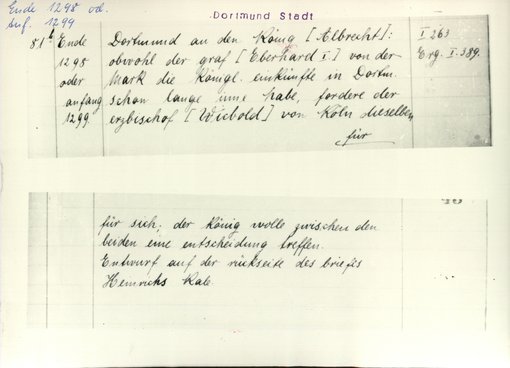 Ende 1298 od.
Anf. 1299
Dortmund Stadt
51b Ende 1298 oder anfang 1299
Dortmund an den König [Albrecht]:
obwohl der graf [Eberhard I.] von der
Mark die königl. einkünfte in Dortm.
schon lange inne habe, fordere der
erzbischof [Wicbold] von Köln dieselben
für
I 263
Erg. I. 389.
für sich; der König wolle zwischen den
beiden eine entscheidung treffen.
Entwurf auf der rückseite des briefes
Heinrichs Kale.